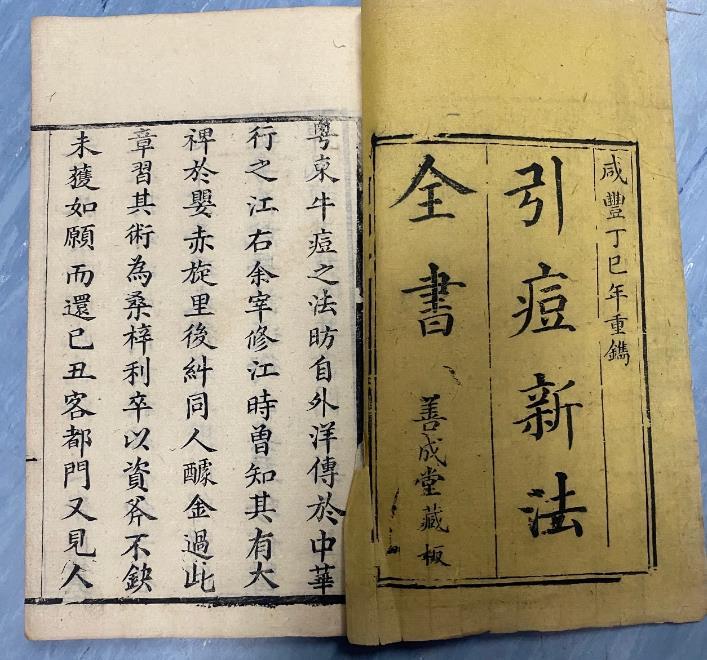 咸豐丁巳年重鐫
引痘新法
全書
善成堂藏板
粵東牛痘之法昉自外洋傳於中華
行之江右余宰修江時曾知其有大
裨於嬰赤旋里後糾同人醵金過此
章習其術為桑梓利卒以資斧不缺
未獲如願而還已丑客都門又見人